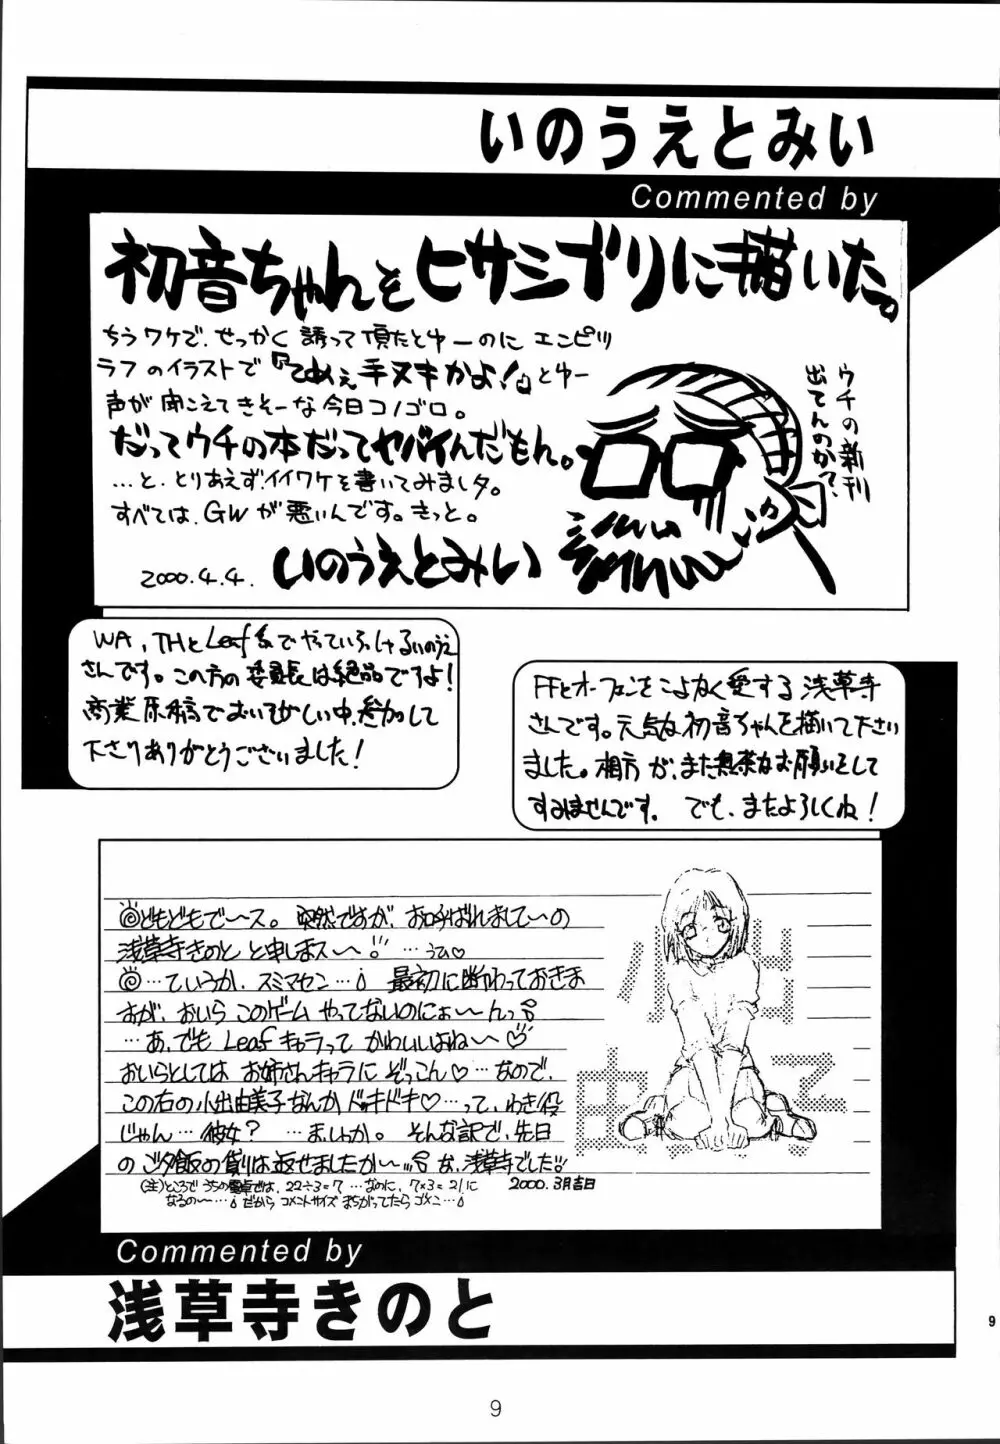 いのうえとみい
Commented by
初音ちゃんをヒサシブリに描いた。
ちうワケで、せっかく誘って頂たとゆーのにエンピツ
ラフのイラストで『てめぇ手ヌキかよ!』とゆー
声が聞こえてきそーな今日コノゴロ。
だってウチの本だってヤバイんだもん。
…と、とりあえずイイワケを書いてみましタ。
すべては、GWが悪いんです。きっと。
2000.4.4. いのうえとみい
ウチの新刊
出てんのか?
WA、THとLeaf系でやっていらっしゃるいのうえ
さんです。この方の委員長は絶品ですよ!
商業原稿でおいそがしい中、参加して
下さりありがとうございました!
FFとオーフェンをこよなく愛する浅草寺
さんです。元気な初音ちゃんを描いて下さい
ました。相方が、また無茶なお願いをして
すみませんです。でも、またよろしくね!
どもどもで〜ス。突然ですが、お呼ばれしまして〜の
浅草寺きのと と申しまス〜!! …うふ♡
…ていうか、スミマセン… 最初に断わっておきま
すが、おいら このゲーム やってないのにょ〜んっ
…あ、でも Leafキャラって かわいいよね〜♡
おいらとしては お姉さんキャラに ぞっこん♡…なので、
この右の小出由美子なんか ドッキドキ♡…って、わき役
じゃん…彼女? …ましょか。そんな訳で、先日
の ご夕飯の借りは返せましたか〜… な、浅草寺でした!!
(注)ところで うちの電卓では、22÷3=7 …なのに、7×3=21に
なるの〜… だから コメントサイズ まちがってたら ゴメン…
2000.3月吉日
小出
由美子
Commented by
浅草寺きのと
9
9